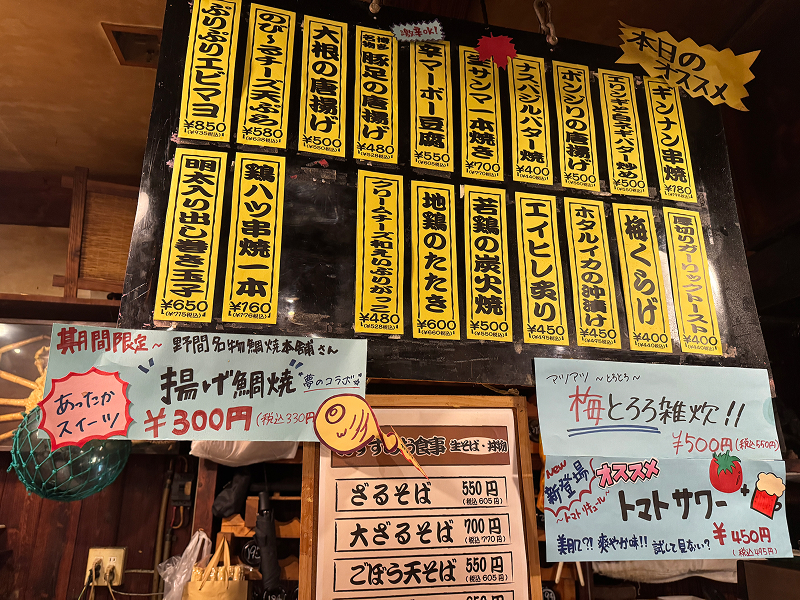 本日のオススメ
ギンナン串焼
¥180
エリンギと白ネギバター炒め
¥500
(¥550税込)
ボンジリの唐揚げ
¥500
(¥550税込)
ナスバジルバター焼
¥400
(¥440税込)
生サンマ一本焼き
¥700
(¥770税込)
激辛OK!
辛マーボー豆腐
¥550
(¥605税込)
博多名物
豚足の唐揚げ
¥480
(¥528税込)
大根の唐揚げ
¥500
(¥550税込)
のび〜るチーズ天ぷら
¥580
(¥638税込)
ぷりぷりエビマヨ
¥850
(¥935税込)
厚切りガーリックトースト
¥400
(¥440税込)
梅くらげ
¥400
(¥440税込)
ホタルイカの沖漬け
¥450
(¥495税込)
エイヒレ炙り
¥450
(¥495税込)
若鶏の炭火焼
¥500
(¥550税込)
地鶏のたたき
¥600
(¥660税込)
クリームチーズ和えいぶりがっこ
¥480
(¥528税込)
鶏ハツ串焼一本
¥160
(¥176税込)
明太入り出し巻き玉子
¥650
(¥715税込)
期間限定〜 野間名物鯛焼本舗さん
揚げ鯛焼
夢のコラボ
あったかスイーツ
¥300円(税込330円)
お食事 生そば・丼物
ざるそば 550円
(税込605円)
大ざるそば 700円
(税込770円)
ごぼう天そば 550円
(税込605円)
マツノマツ 〜とろとろ〜
梅とろろ雑炊!!
¥500円(税込550円)
NEW
新登場
オススメ
〜トマトリキュール〜
トマトサワー
¥450円
(税込495円)
美肌で?!爽やか味!!試して見ない?
195